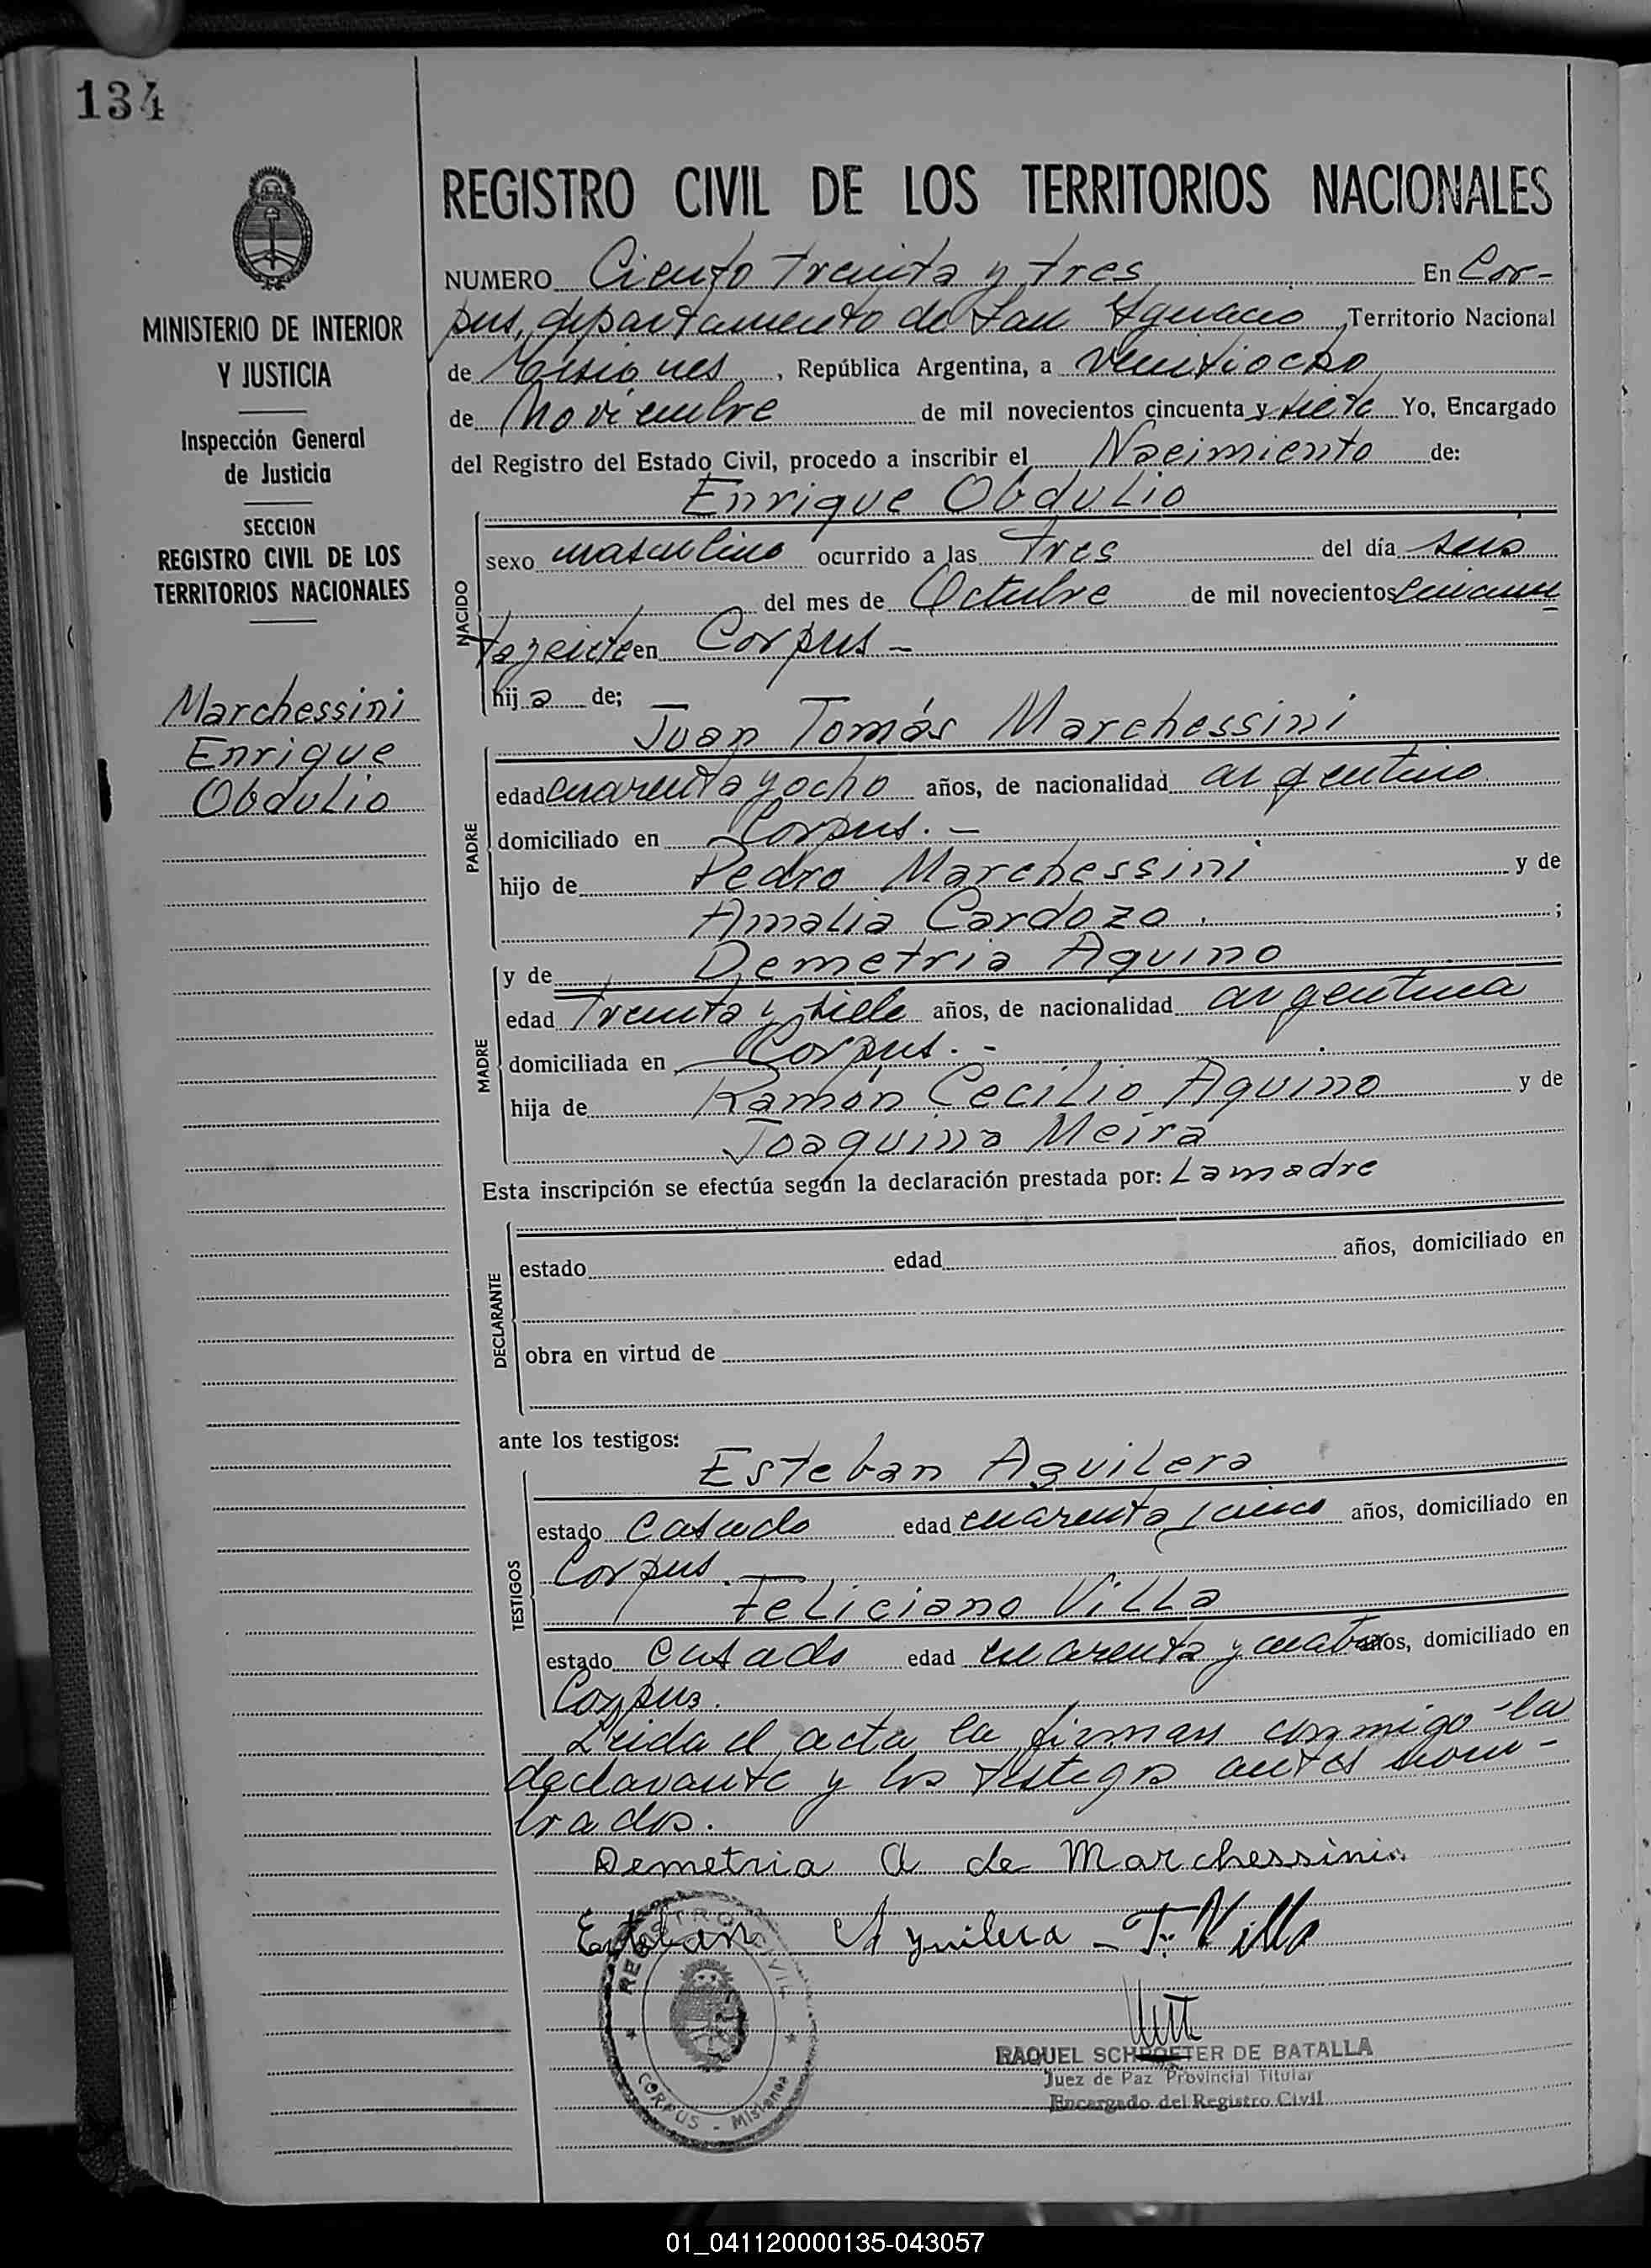 134
REGISTRO CIVIL DE LOS TERRITORIOS NACIONALES
MINISTERIO DE INTERIOR
Y JUSTICIA
Inspección General
de Justicia
SECCION
REGISTRO CIVIL DE LOS
TERRITORIOS NACIONALES
Marchessini
Enrique
Obdulio
NUMERO Ciento treinta y tres En Cor-
pus, departamento de San Ignacio, Territorio Nacional
de Misiones, República Argentina, a veintiocho
de Noviembre de mil novecientos cincuenta y siete Yo, Encargado
del Registro del Estado Civil, procedo a inscribir el Nacimiento de:
Enrique Obdulio
NACIDO
sexo masculino ocurrido a las tres del día seis
del mes de Octubre de mil novecientos cincuen
ta y siete en Corpus -
hij o de;
Juan Tomás Marchessini
PADRE
edad cuarenta y ocho años, de nacionalidad argentino
domiciliado en Corpus. -
hijo de Pedro Marchessini y de
Amalia Cardozo ;
MADRE
y de Demetria Aquino
edad treinta y siete años, de nacionalidad argentina
domiciliada en Corpus. -
hija de Ramón Cecilio Aquino y de
Joaquina Meira
Esta inscripción se efectúa según la declaración prestada por: La madre
DECLARANTE
estado edad años, domiciliado en
obra en virtud de
ante los testigos:
Esteban Aguilera
TESTIGOS
estado casado edad cuarenta y cinco años, domiciliado en
Corpus.
Feliciano Villa
estado casado edad cuarenta y cuatro años, domiciliado en
Corpus.
Leida el acta la firman conmigo la
declarante y los testigos antes nom-
brados.
Demetria A de Marchessini
Esteban Aguilera - F. Villa
REGISTRO CIVIL
CORPUS - Misiones
RAQUEL SCHROETER DE BATALLA
Juez de Paz Provincial Titular
Encargado del Registro Civil
01_041120000135-043057